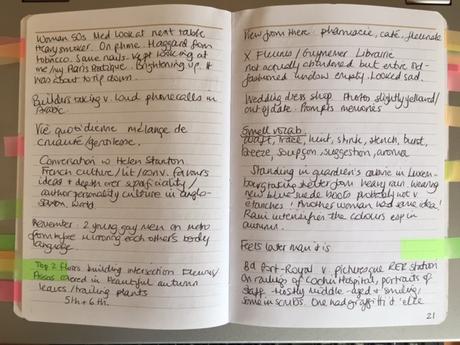 Woman 50s. Med look at next table
Heavy smoker. On phone. Haggard from
tobacco. Same nails. Kept looking at
me/my Paris Boutique. Brightening up. It
was about to rip down.
Builders talking v. loud phonecalls in
Arabic.
Vie quotidienne mélange de
cruauté/gentillesse.
Conversation w Helen Stanton
French culture/lit/conv. favours
ideas + depth over superficiality/
author personality culture in anglo-
saxon world.
Remember: 2 young gay men on metro
from before mirroring each other's body
language.
Top 2 floors building intersection Fleurus/
Assas covered in beautiful autumn
leaves/trailing plants
5th + 6th.
View from there: pharmacie, café, fleuriste
X Fleurus/Guynemer Librairie
not actually abandoned but entire old-
fashioned window empty. Looked sad.
Wedding dress shop. Photos slightly yellowed/
out of date. Prompts memories
Smell vocab.
waft, trace, hint, stink, stench, burst,
breeze, soupçon, suggestion, aroma
Standing in guardien's cabine in Luxem-
bourg taking shelter from heavy rain. wearing
new blue suede boots probably not v
étanches! Another woman had same idea!
Rain intensifies the colours esp in
autumn.
Feels later than it is
Bd Port-Royal v. picturesque RER station
On railings of Cochin Hospital, portraits of
staff - mostly middle-aged + smiling/
some in scrubs. One had graffiti +
21